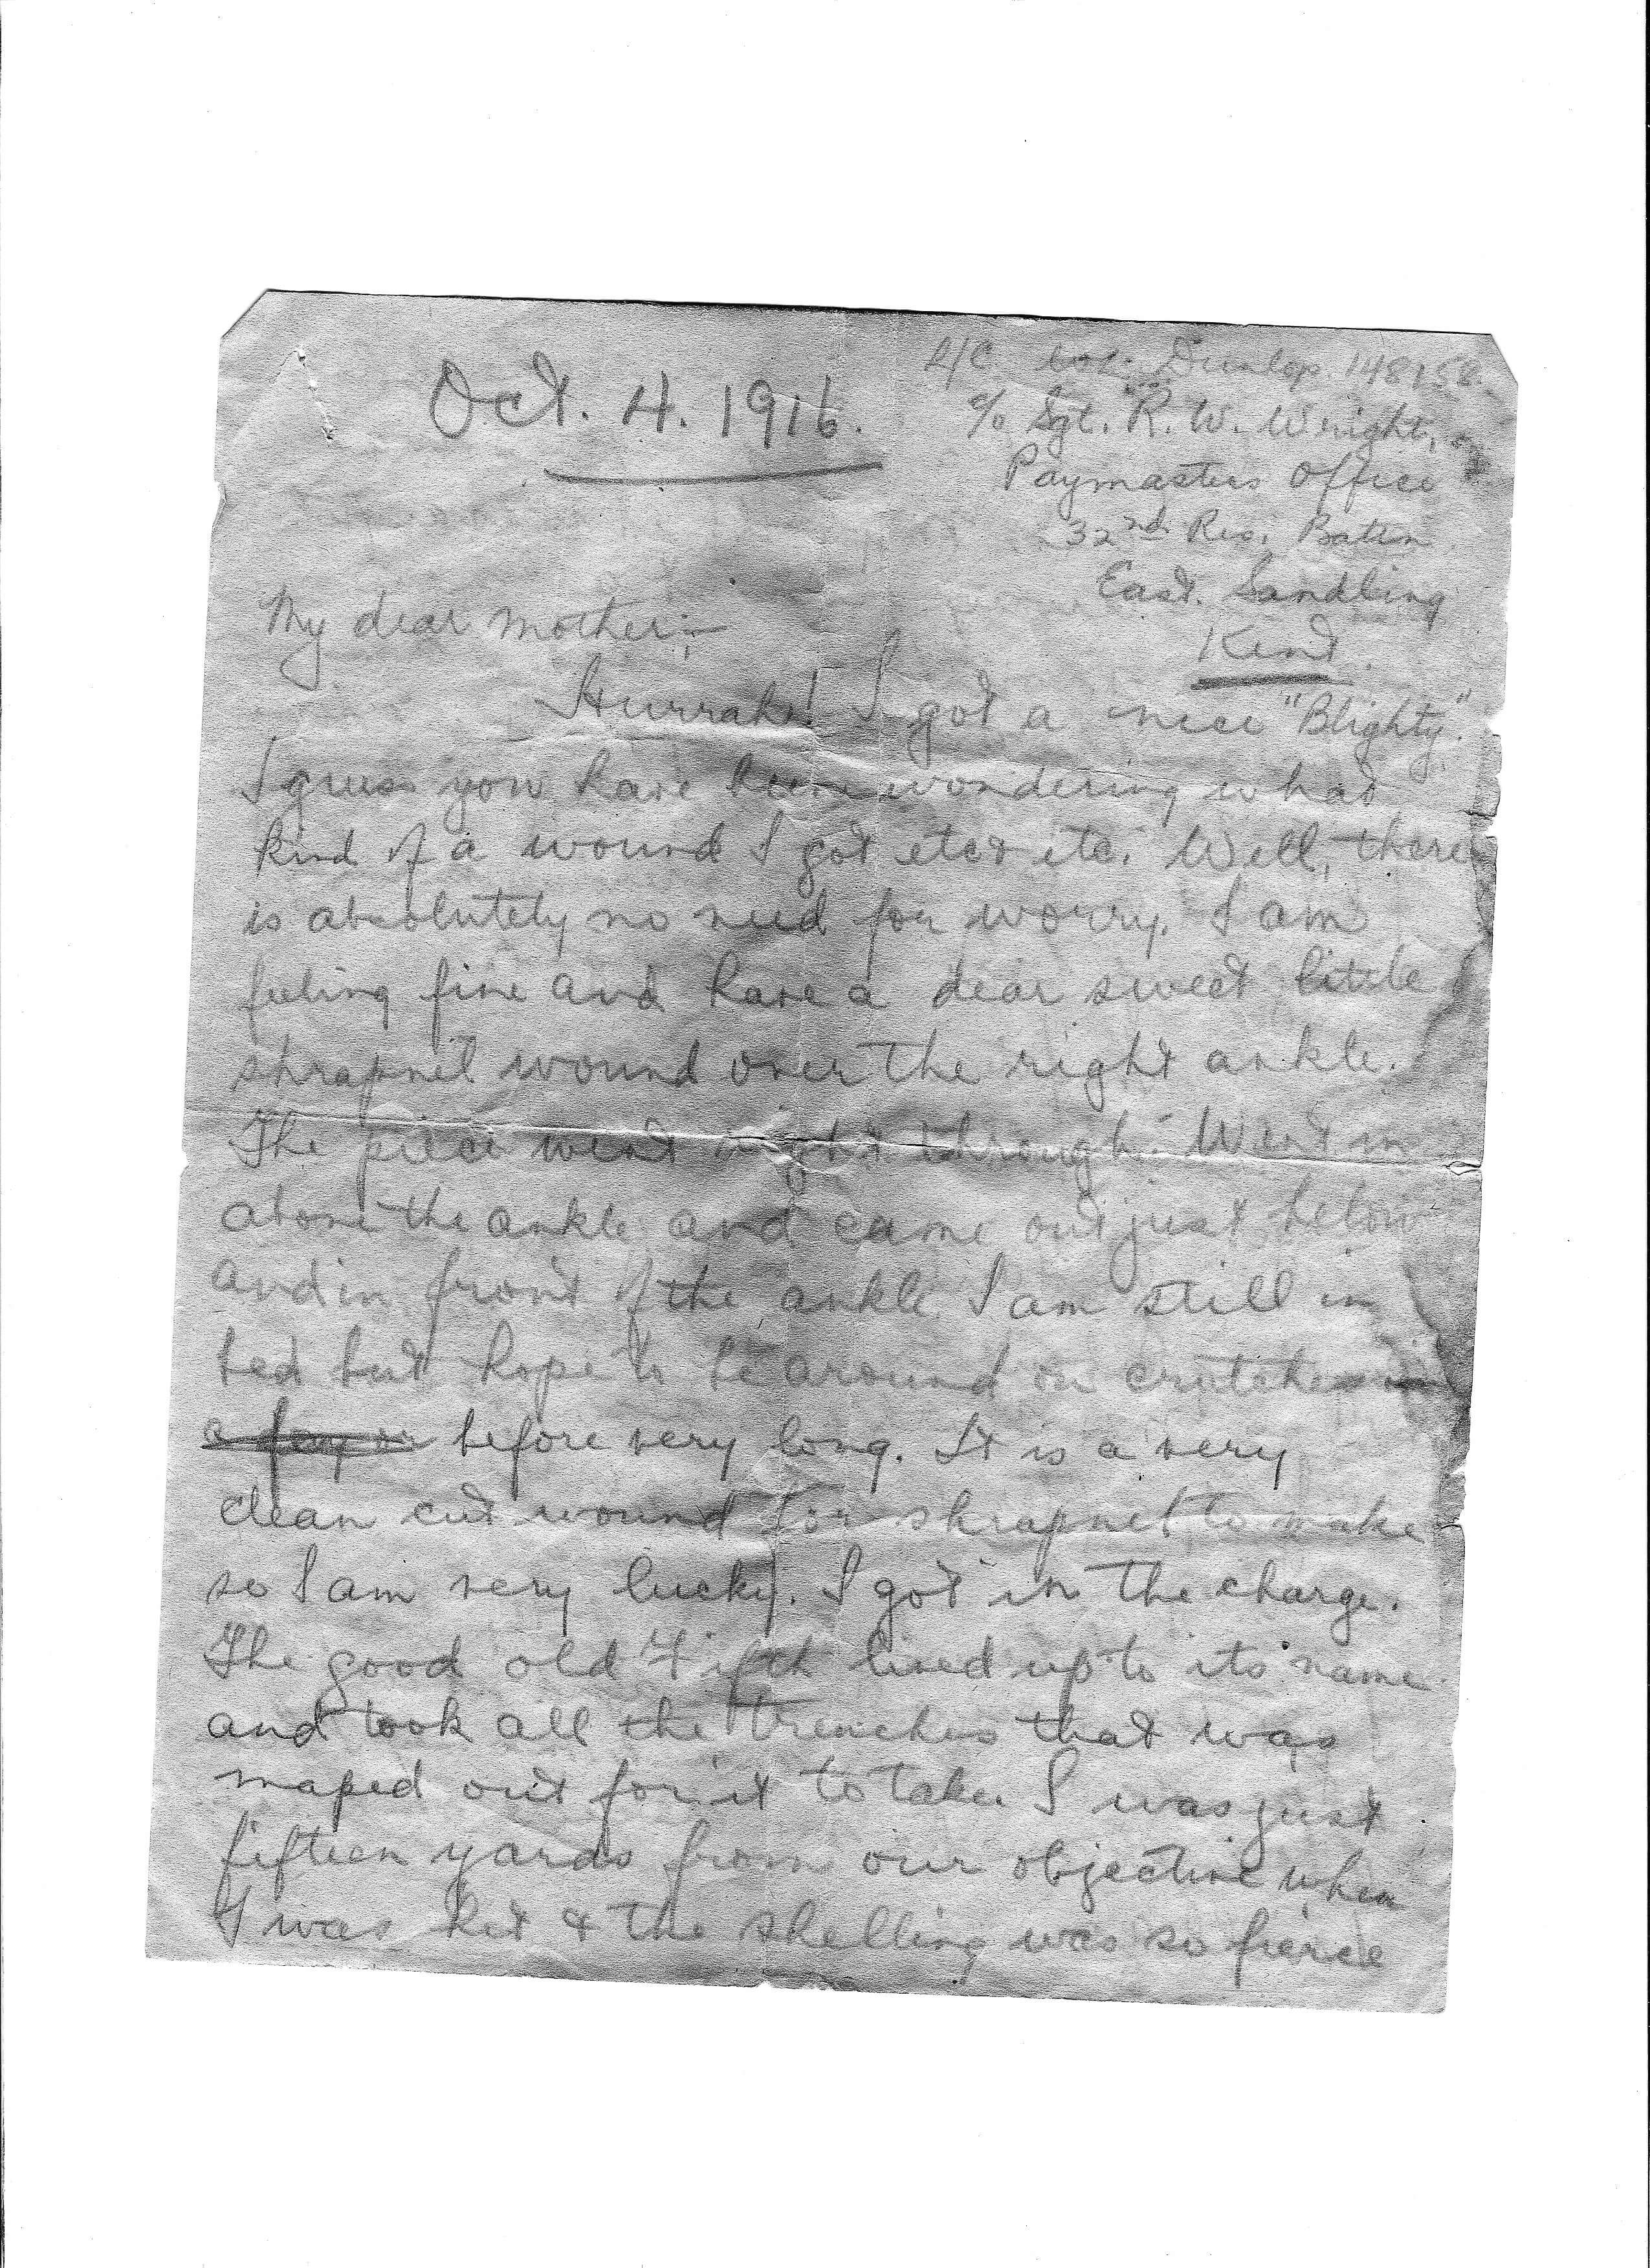 Oct. 4. 1916.
L/C. Dunlop. 148158.
c/o Sgt. R. W. Wright,
Paymasters Office
32nd Res. Battn.
East. Sandling
Kent.
My dear mother:-
Hurrah! I got a nice "Blighty".
I guess you have been wondering what
kind of a wound I got etc & etc. Well, there
is absolutely no need for worry. I am
feeling fine and have a dear sweet little
shrapnel wound over the right ankle.
The piece went right through. Went in
above the ankle and came out just below
and in front of the ankle. I am still in
bed but hope to be around on crutches in
a before very long. It is a very
clean cut wound for shrapnel to make
so I am very lucky. I got in the charge.
The good old Fifth lived up to its name
and took all the trenches that was
maped out for it to take. I was just
fifteen yards from our objective when
I was hit & the shelling was so fierce